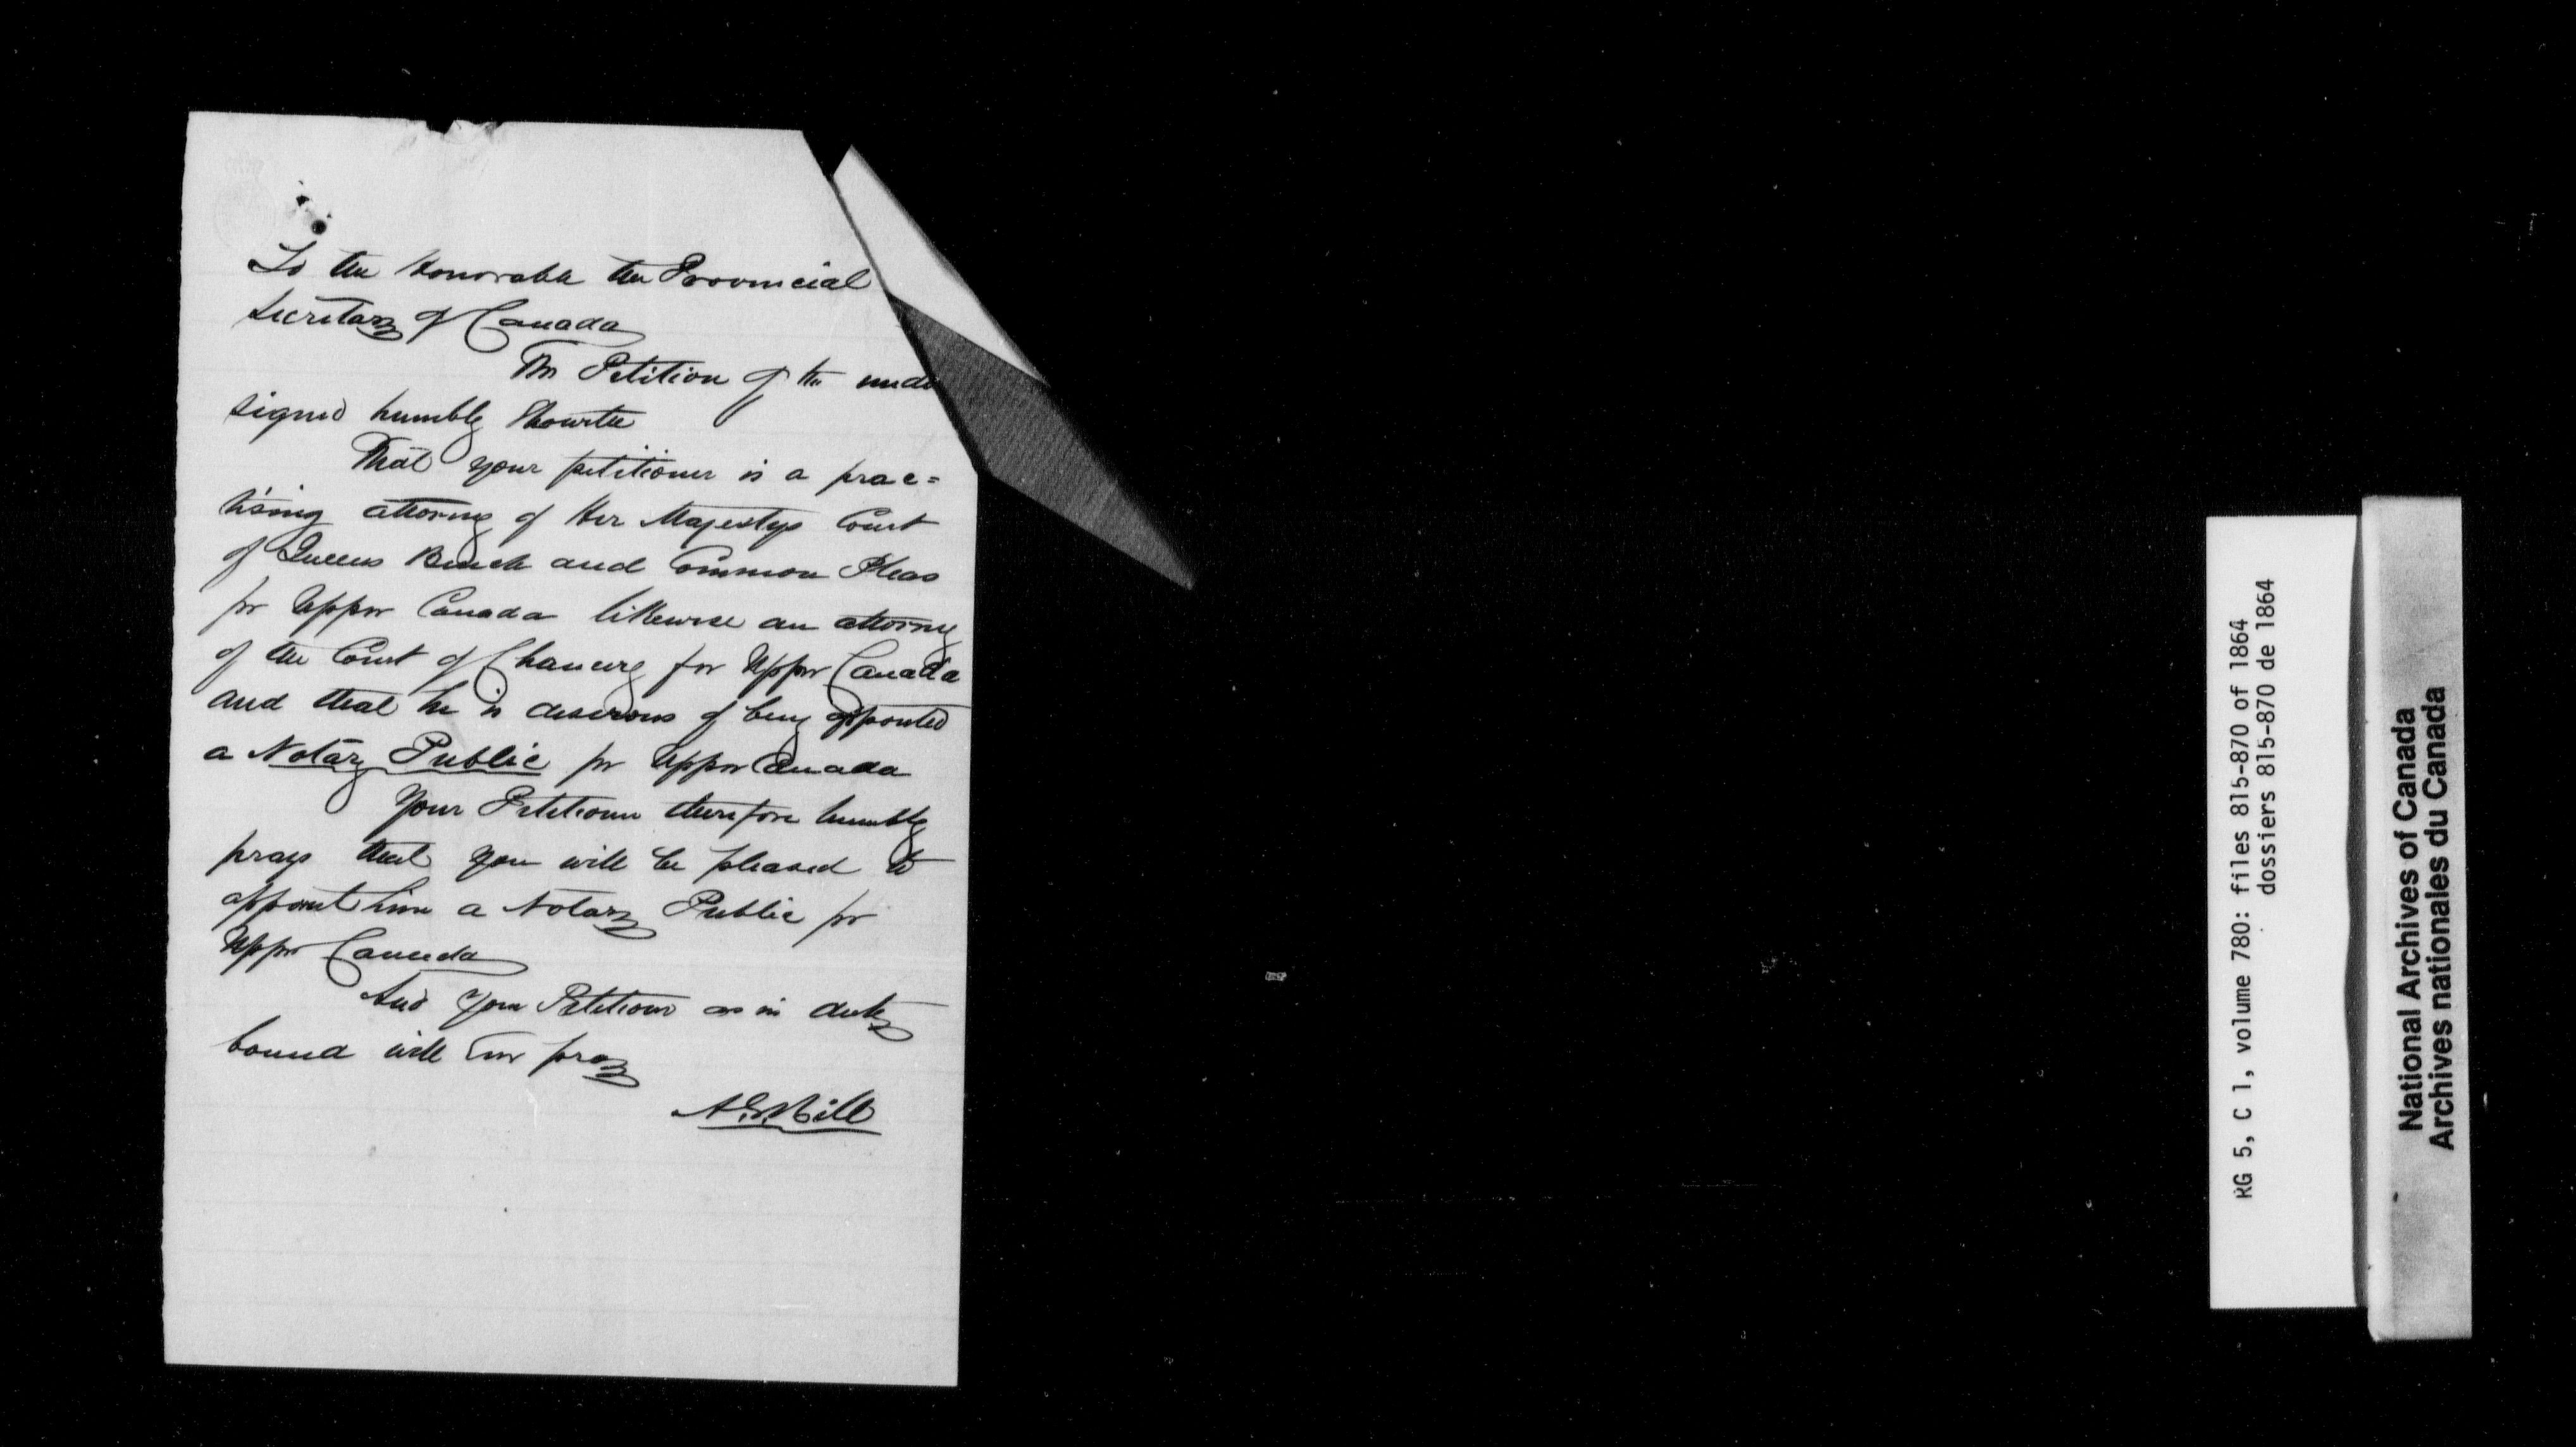 To the Honorable the Provincial
Secretary of Canada
The Petition of the unde
signed humbly Sheweth
That your petitioner is a prac=
tising attorney of Her Majestys Court
of Queens Bench and Common Pleas
for Upper Canada likewise an attorney
of the Court of Chancery for Upper Canada
and that he is desirous of being appointed
a Notary Public for Upper Canada
Your Petitioner therefore humbly
prays that you will be pleased to
appoint him a Notary Public for
Upper Canada
And your Petitioner as in duty
bound will ever pray
RG 5, C 1, volume 780: files 815-870 of 1864
dossiers 815-870 de 1864
National Archives of Canada
Archives nationales du Canada